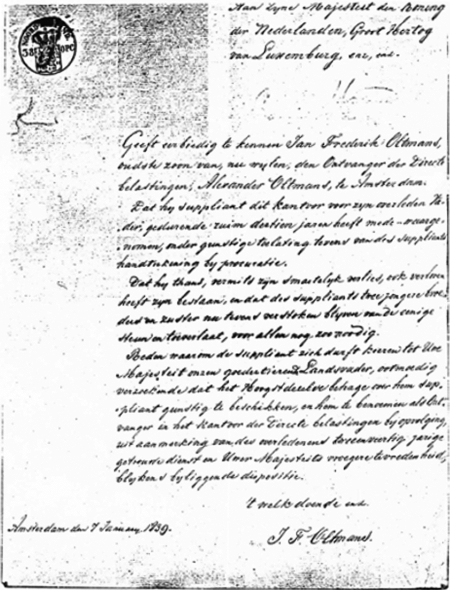 Aan Zyne Majesteit den Koning
der Nederlanden, Groot Hertog
van Luxemburg, enz, enz.
Geeft eerbiedig te kennen Jan Frederik Oltmans,
oudste zoon van, nu wylen, den Ontvanger der Directe
belastingen, Alexander Oltmans, te Amsterdam.
Dat hy suppliant dit kantoor voor zyn overleden Va-
der, gedurende ruim dertien jaren heeft mede-waarge-
nomen, onder gunstige toelating tevens van des suppliants
handtekening by procuratie.
Dat hy thans, vermits zyn smartelyk verlies, ook verloren
heeft zyn bestaan, en dat des suppliants twee jongere broe-
ders en zuster nu tevens verstoken blyven van de eenige
steun en toeverlaat, voor allen nog zoo noodig.
Reden waarom de suppliant zich durft keeren tot Uwe
Majesteit onzen goedertieren Landsvader, ootmoedig
verzoekende dat het Hoogstdezelve behage over hem sup-
pliant gunstig te beschikken, en hem te benoemen als Ont-
vanger in het kantoor der Directe belastingen by opvolging,
uit aanmerking van des overledenens tweeenveertig jarige
getrouwe dienst en Uwer Majesteits vroegere tevredenheid,
blykens byliggende dispositie.
't welk doende enz.
Amsterdam den 7 January 1839.
J. F. Oltmans.